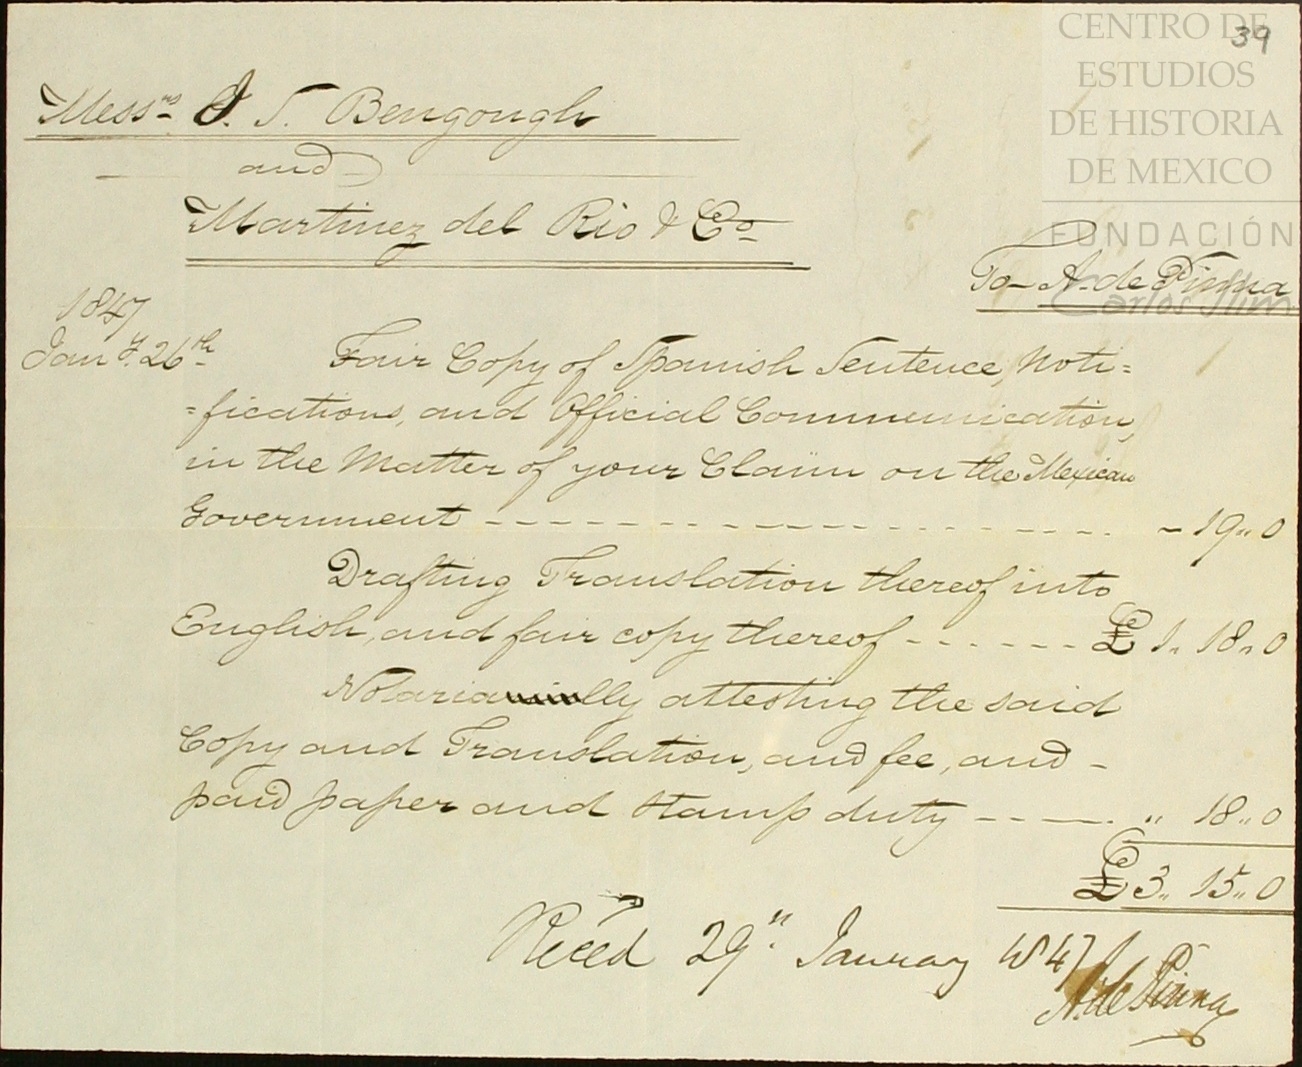 39
CENTRO DE
ESTUDIOS
DE HISTORIA
DE MEXICO
FUNDACIÓN
Carlos Slim
Messrs J. S. Bengough
and
Martinez del Rio & Co
To A. de Pinna
1847
Jany. 26th
Fair Copy of Spanish Sentence, Noti=
=fications, and Official Communication,
in the Matter of your Claim on the Mexican
Government - - - - - - - - - - - - - - - - - - - - - - 19 " 0
Drafting Translation thereof into
English, and fair copy thereof - - - - - - £ 1 " 18 " 0
Notarially attesting the said
Copy and Translation, and fee, and -
paid paper and Stamp duty - - - - - " 18 " 0
£ 3 " 15 " 0
Recd 29th Janury 1847
A. de Pinna